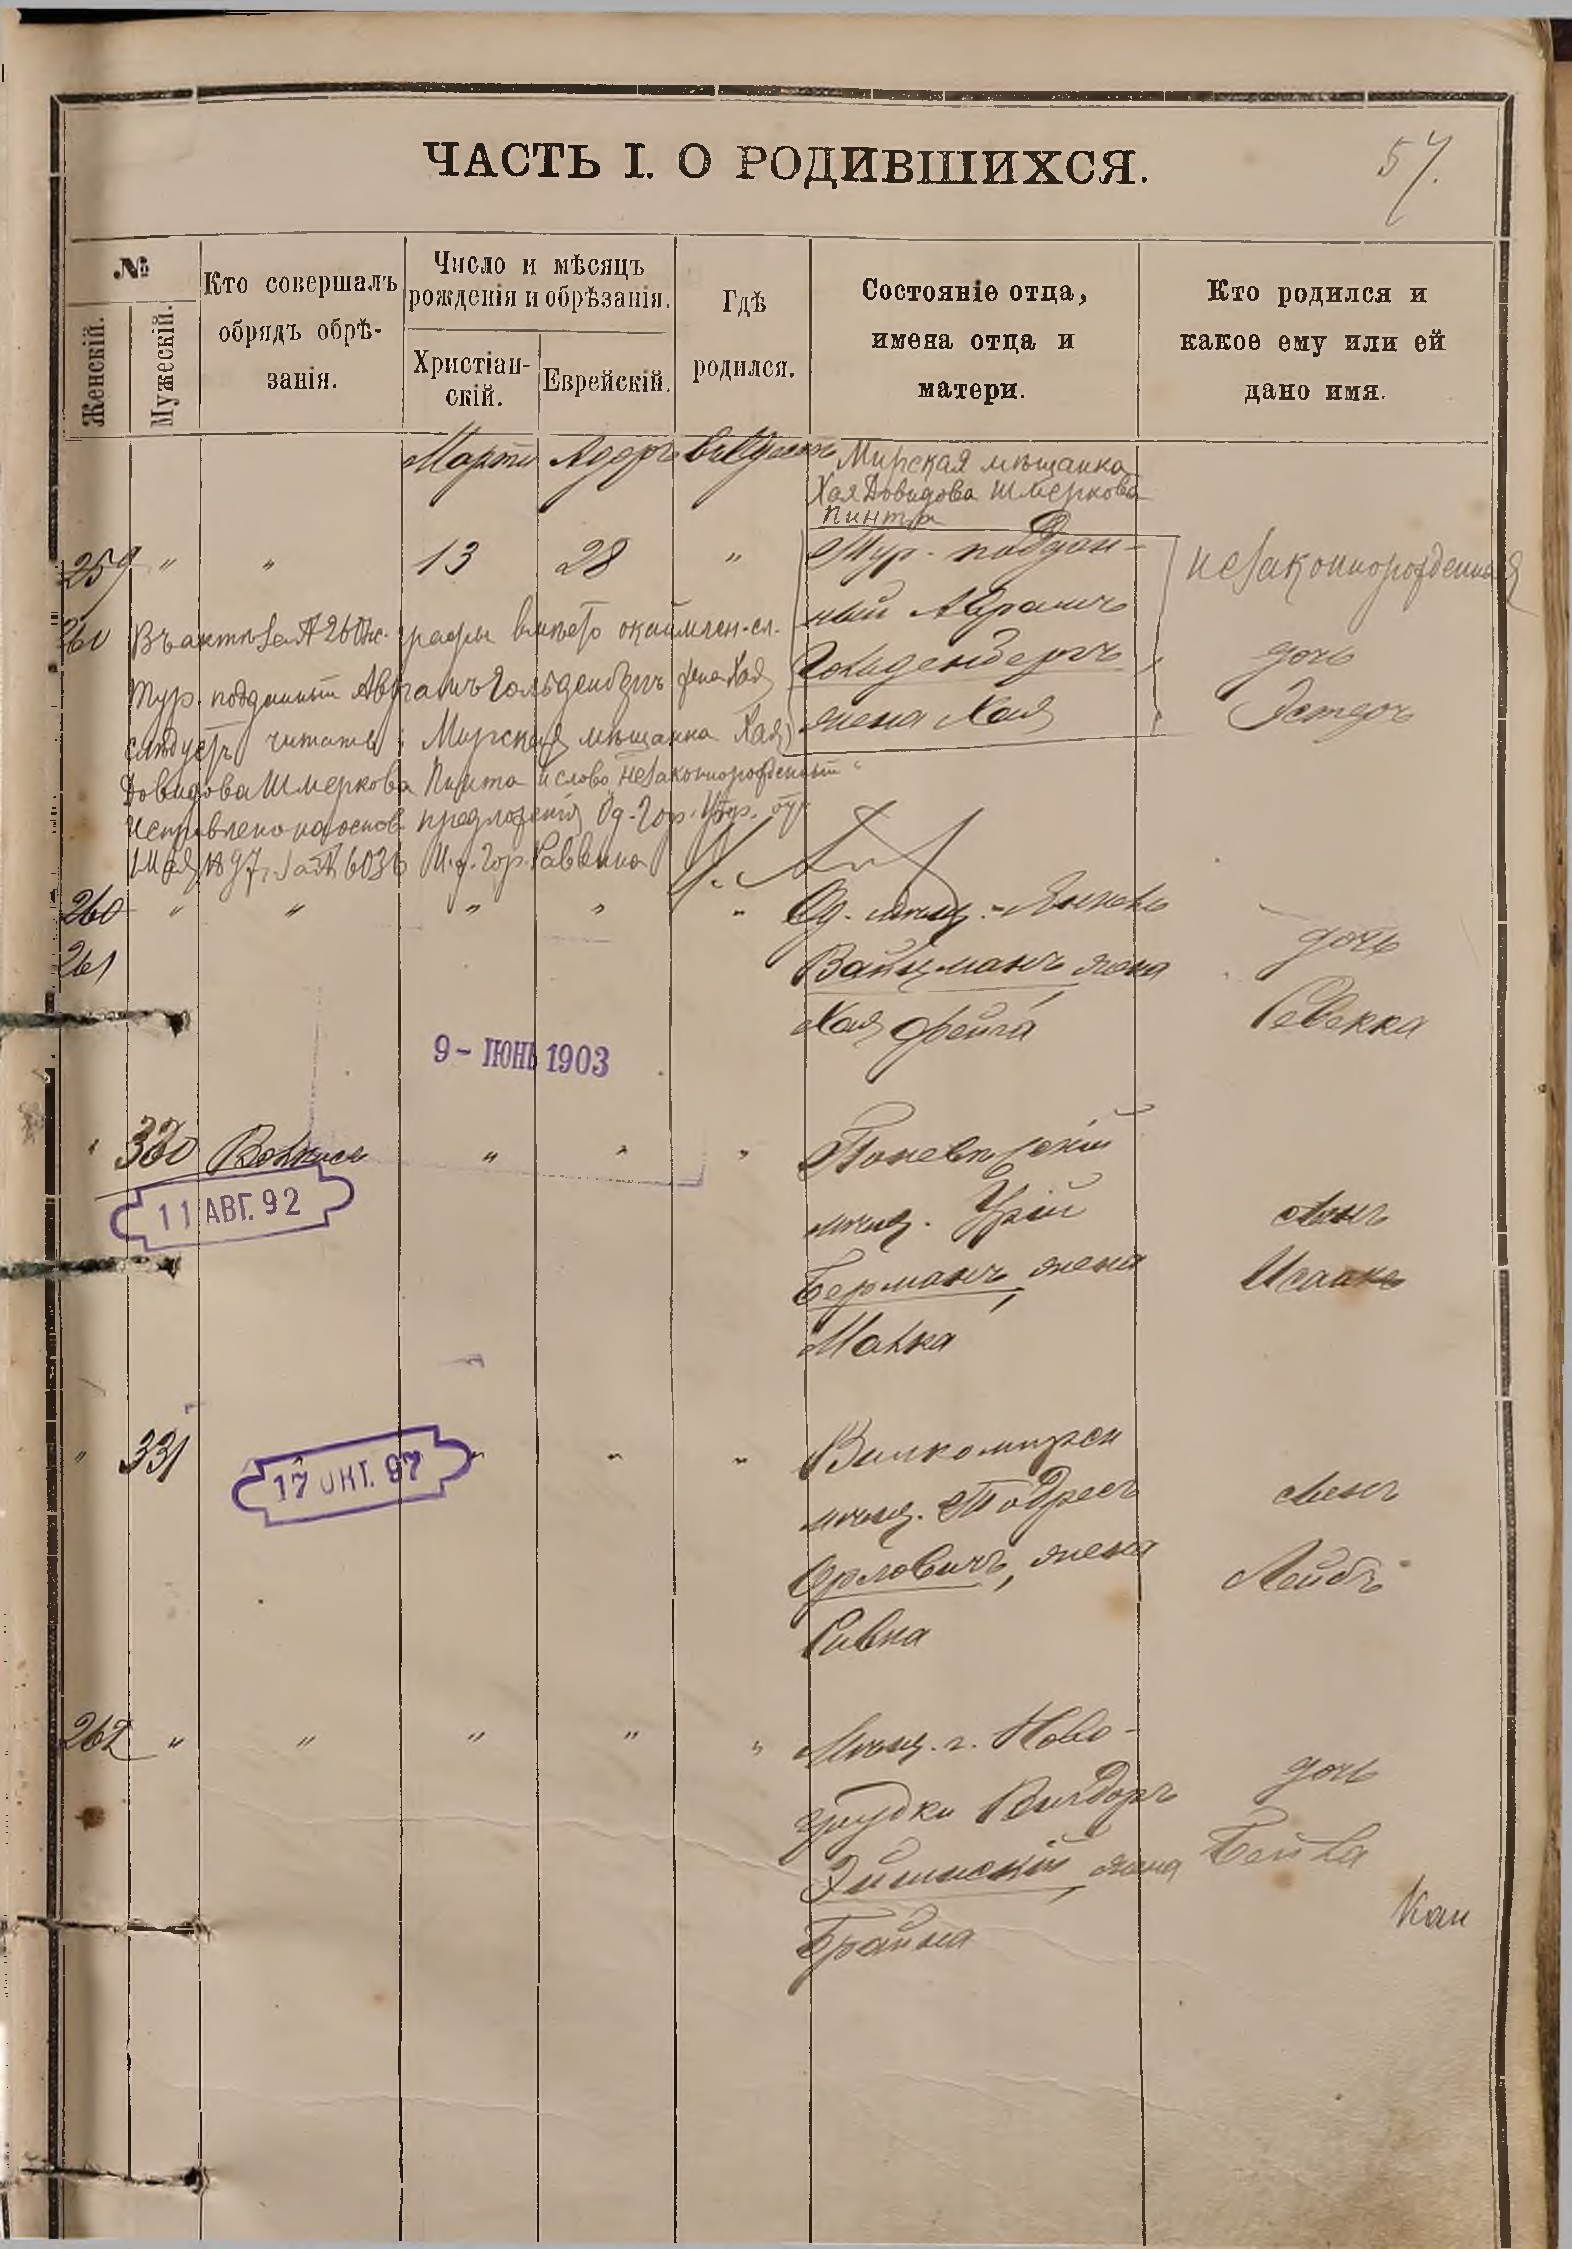 ЧАСТЬ I. О РОДИВШИХСЯ.
57.
№
Женскій.
Мужескій.
Кто совершалъ
обрядъ обрѣ-
занія.
Число и мѣсяцъ
рожденія и обрѣзанія.
Христіан-
скій.
Еврейскій.
Гдѣ
родился.
Состояніе отца,
имена отца и
матери.
Кто родился и
какое ему или ей
дано имя.
Марта Адаръ въ Одессѣ
Мирская мѣщанка
Хая Довидова Шмеркова
Пинта
259 " " 13 28 "
Тур. поддан-
ный Аврамъ
Гольденбергъ,
жена Хая
незаконнорожденная
дочь
Эстеръ
260 Въ актѣ за № 260 ж. графы вмѣсто окаймлен. сл.
тур. подданный Аврамъ Гольденбергъ жена Хая
слѣдуетъ читать: Мирская мѣщанка Хая
Довидова Шмеркова Пинта и слово "незаконнорожденный"
Исправлено на основ. предложенія Од. Гор. Упр. отъ
1 Мая 1897 г. за № 6036 И. д. Гор. Раввина
260 " " " " "
261
Од. мѣщ.
Вайцманъ, жена
Хая Фейга
дочь
Ревекка
9 - ІЮНЬ 1903
" 330 " " "
11 АВГ. 92
мѣщ. Урій
Берманъ, жена
Малка
сынъ
Исаакъ
" 331 " " "
17 ОКТ. 97
Вилкомирск
мѣщ. Тодресъ
Орловичъ, жена
Ривка
сынъ
Лейбъ
262 " " " " "
Мѣщ. г. Ново-
грудки Вигдоръ
жена
Брайна
дочь
Бейла
Кан